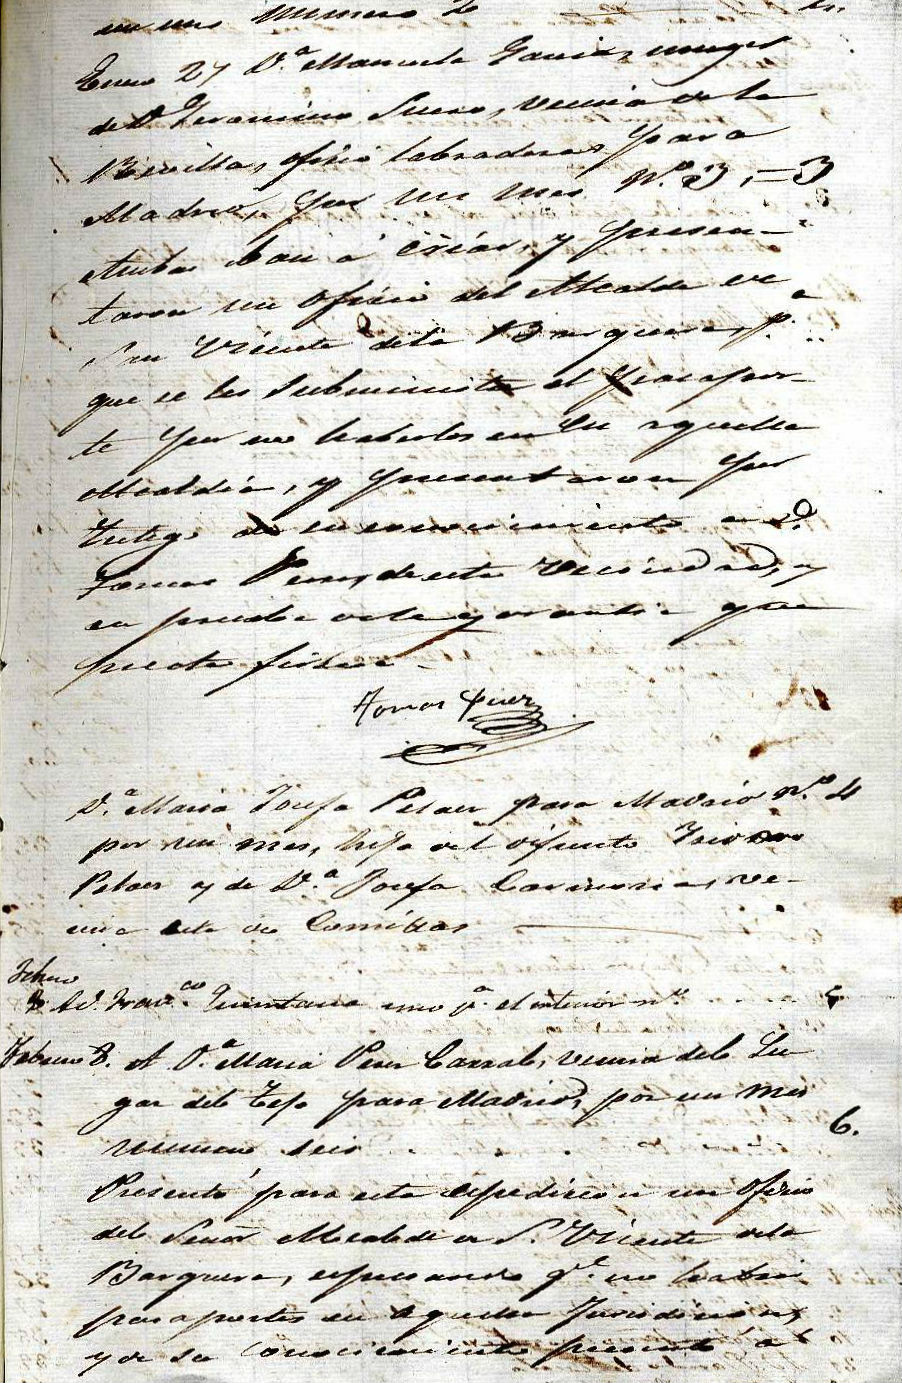 Enero 27 D.ª Manuela Garcia, muger
de D. Geronimo Sucro, vecina de la
Revilla, oficio labradores, para
Madrid, por un mes n.º 3, = 3
Ambas ban á criar, y presen-
taron un oficio del Alcalde de
San Vicente de la Barquera, p.ª
que se les subministre el pasapor-
te por no haberlos en su aquella
Alcaldia, y presentaron por
testigo de su conocimiento a D.
Tomas Perez, de esta vecindad, y
en prueba de la garantia que
presta firma -
Tomas Perez
D.ª Maria Josefa Pelaez para Madrid n.º 4
por un mes, hija del difunto Isidoro
Pelaez y de D.ª Josefa, ve-
cina esta de Comillas
Febrero
3 A D. Fran.co Quintana uno p.ª el interior n.º 5
Febrero 8. A D.ª Maria Perez Carral, vecina del Lu
gar del Tejo para Madrid, por un mes
numero seis 6.
Presentó para esta espedicion un oficio
del Señor Alcalde de S. Vicente de la
Barquera, espresando q.e no habia
pasaportes en aquella Jurisdicion,
y de su conocimiento presentó á